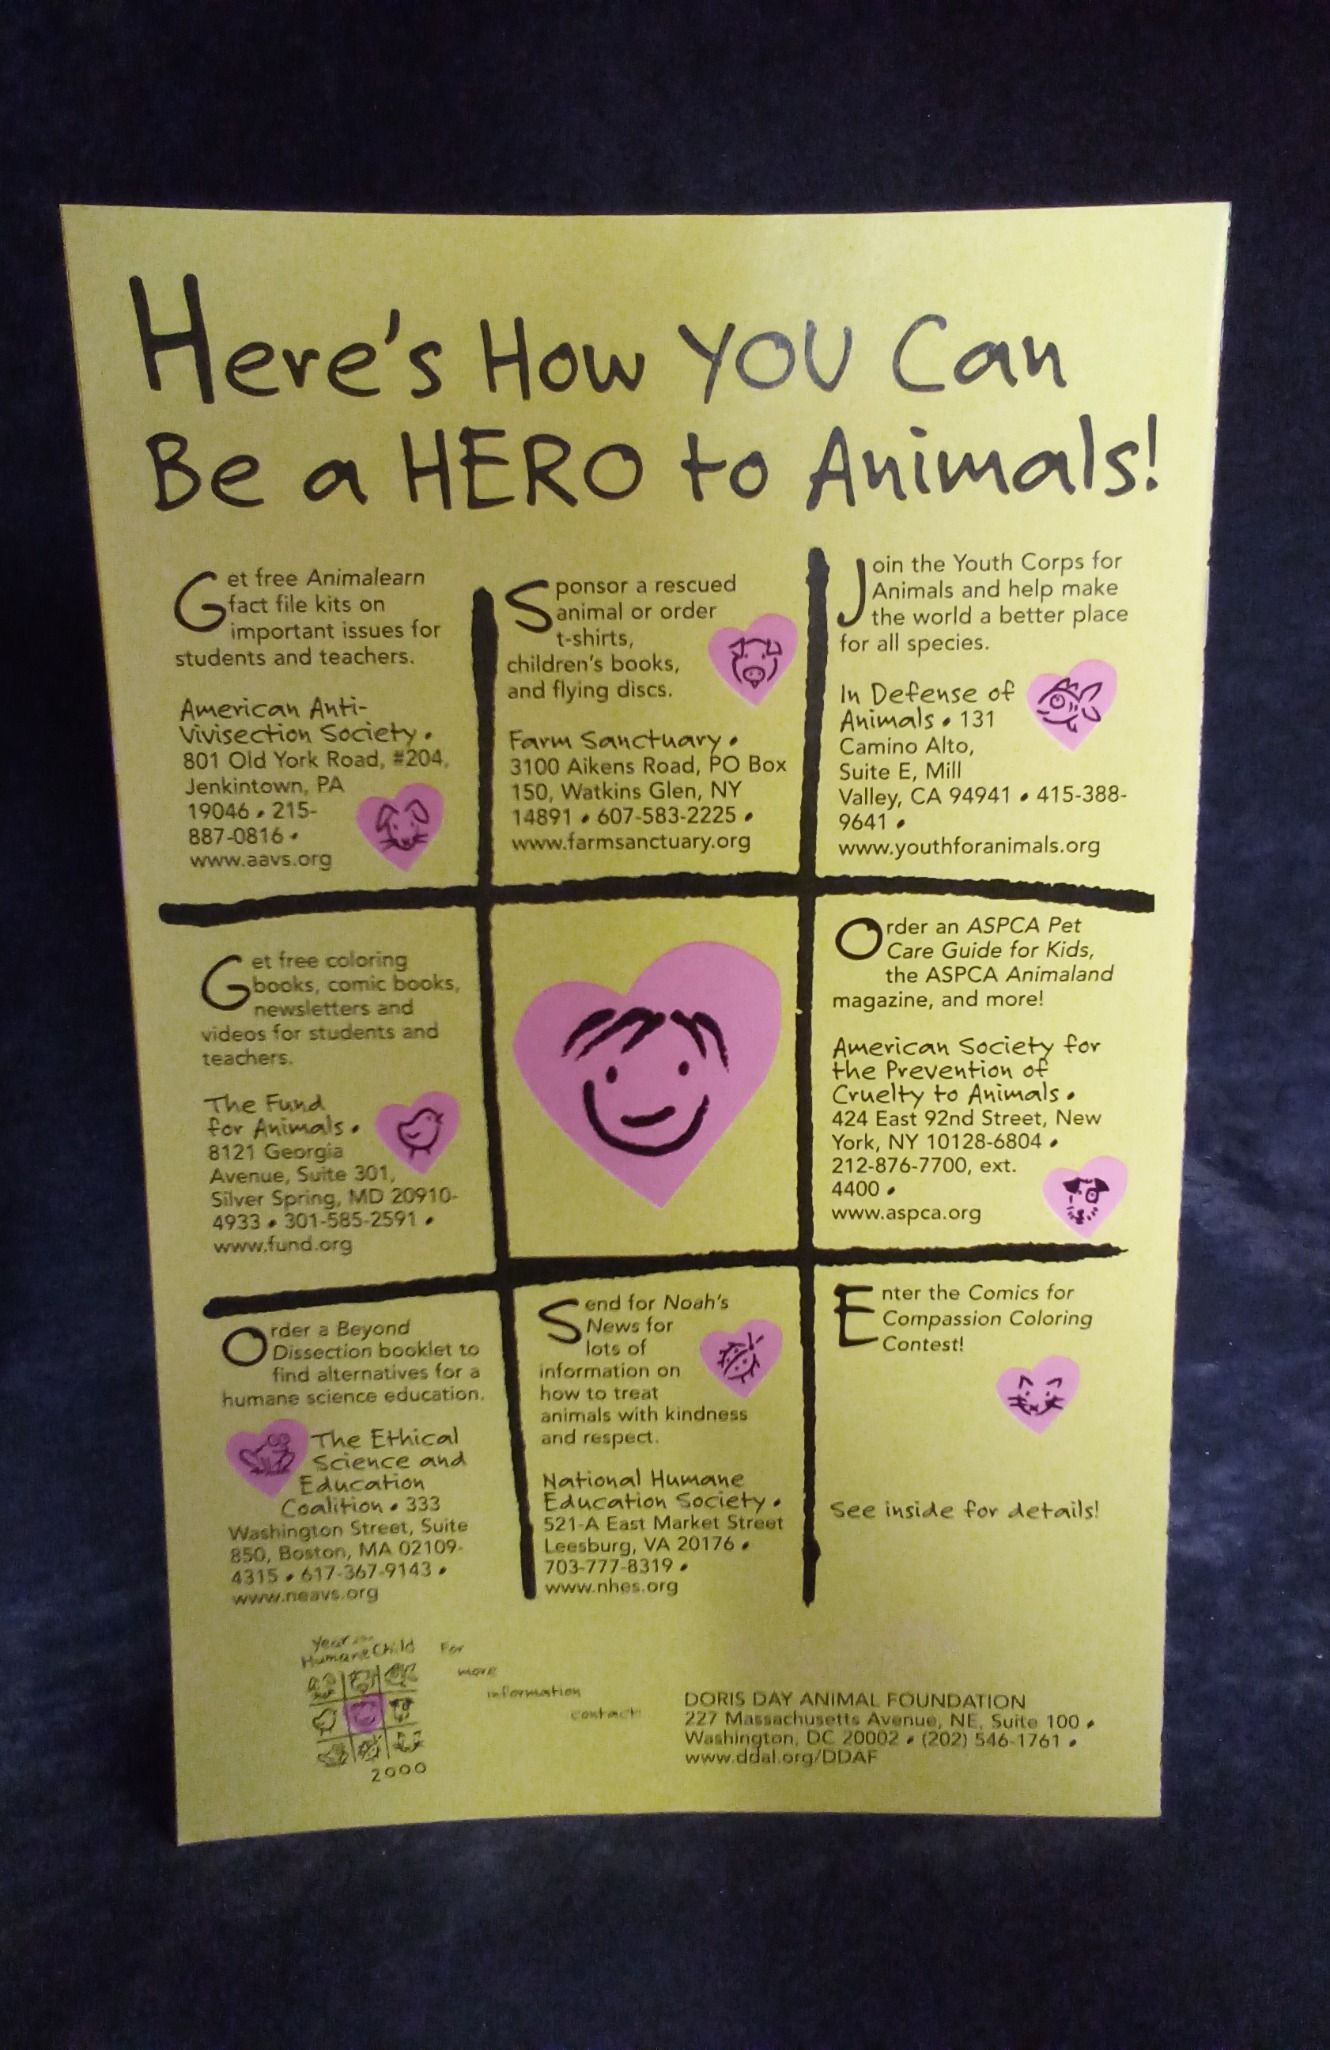 Here's How YOU Can
Be a HERO to Animals!
Get free Animalearn
fact file kits on
important issues for
students and teachers.
American Anti-
Vivisection Society •
801 Old York Road, #204,
Jenkintown, PA
19046 • 215-
887-0816 •
www.aavs.org
Sponsor a rescued
animal or order
t-shirts,
children's books,
and flying discs.
Farm Sanctuary •
3100 Aikens Road, PO Box
150, Watkins Glen, NY
14891 • 607-583-2225 •
www.farmsanctuary.org
Join the Youth Corps for
Animals and help make
the world a better place
for all species.
In Defense of
Animals • 131
Camino Alto,
Suite E, Mill
Valley, CA 94941 • 415-388-
9641 •
www.youthforanimals.org
Get free coloring
books, comic books,
newsletters and
videos for students and
teachers.
The Fund
for Animals •
8121 Georgia
Avenue, Suite 301,
Silver Spring, MD 20910-
4933 • 301-585-2591 •
www.fund.org
Order an ASPCA Pet
Care Guide for Kids,
the ASPCA Animaland
magazine, and more!
American Society for
the Prevention of
Cruelty to Animals •
424 East 92nd Street, New
York, NY 10128-6804 •
212-876-7700, ext.
4400 •
www.aspca.org
Order a Beyond
Dissection booklet to
find alternatives for a
humane science education.
The Ethical
Science and
Education
Coalition • 333
Washington Street, Suite
850, Boston, MA 02109-
4315 • 617-367-9143 •
www.neavs.org
Send for Noah's
News for
lots of
information on
how to treat
animals with kindness
and respect.
National Humane
Education Society •
521-A East Market Street
Leesburg, VA 20176 •
703-777-8319 •
www.nhes.org
Enter the Comics for
Compassion Coloring
Contest!
See inside for details!
Year
Humane Child
2000
For
more
information
contact:
DORIS DAY ANIMAL FOUNDATION
227 Massachusetts Avenue, NE, Suite 100 •
Washington, DC 20002 • (202) 546-1761 •
www.ddal.org/DDAF